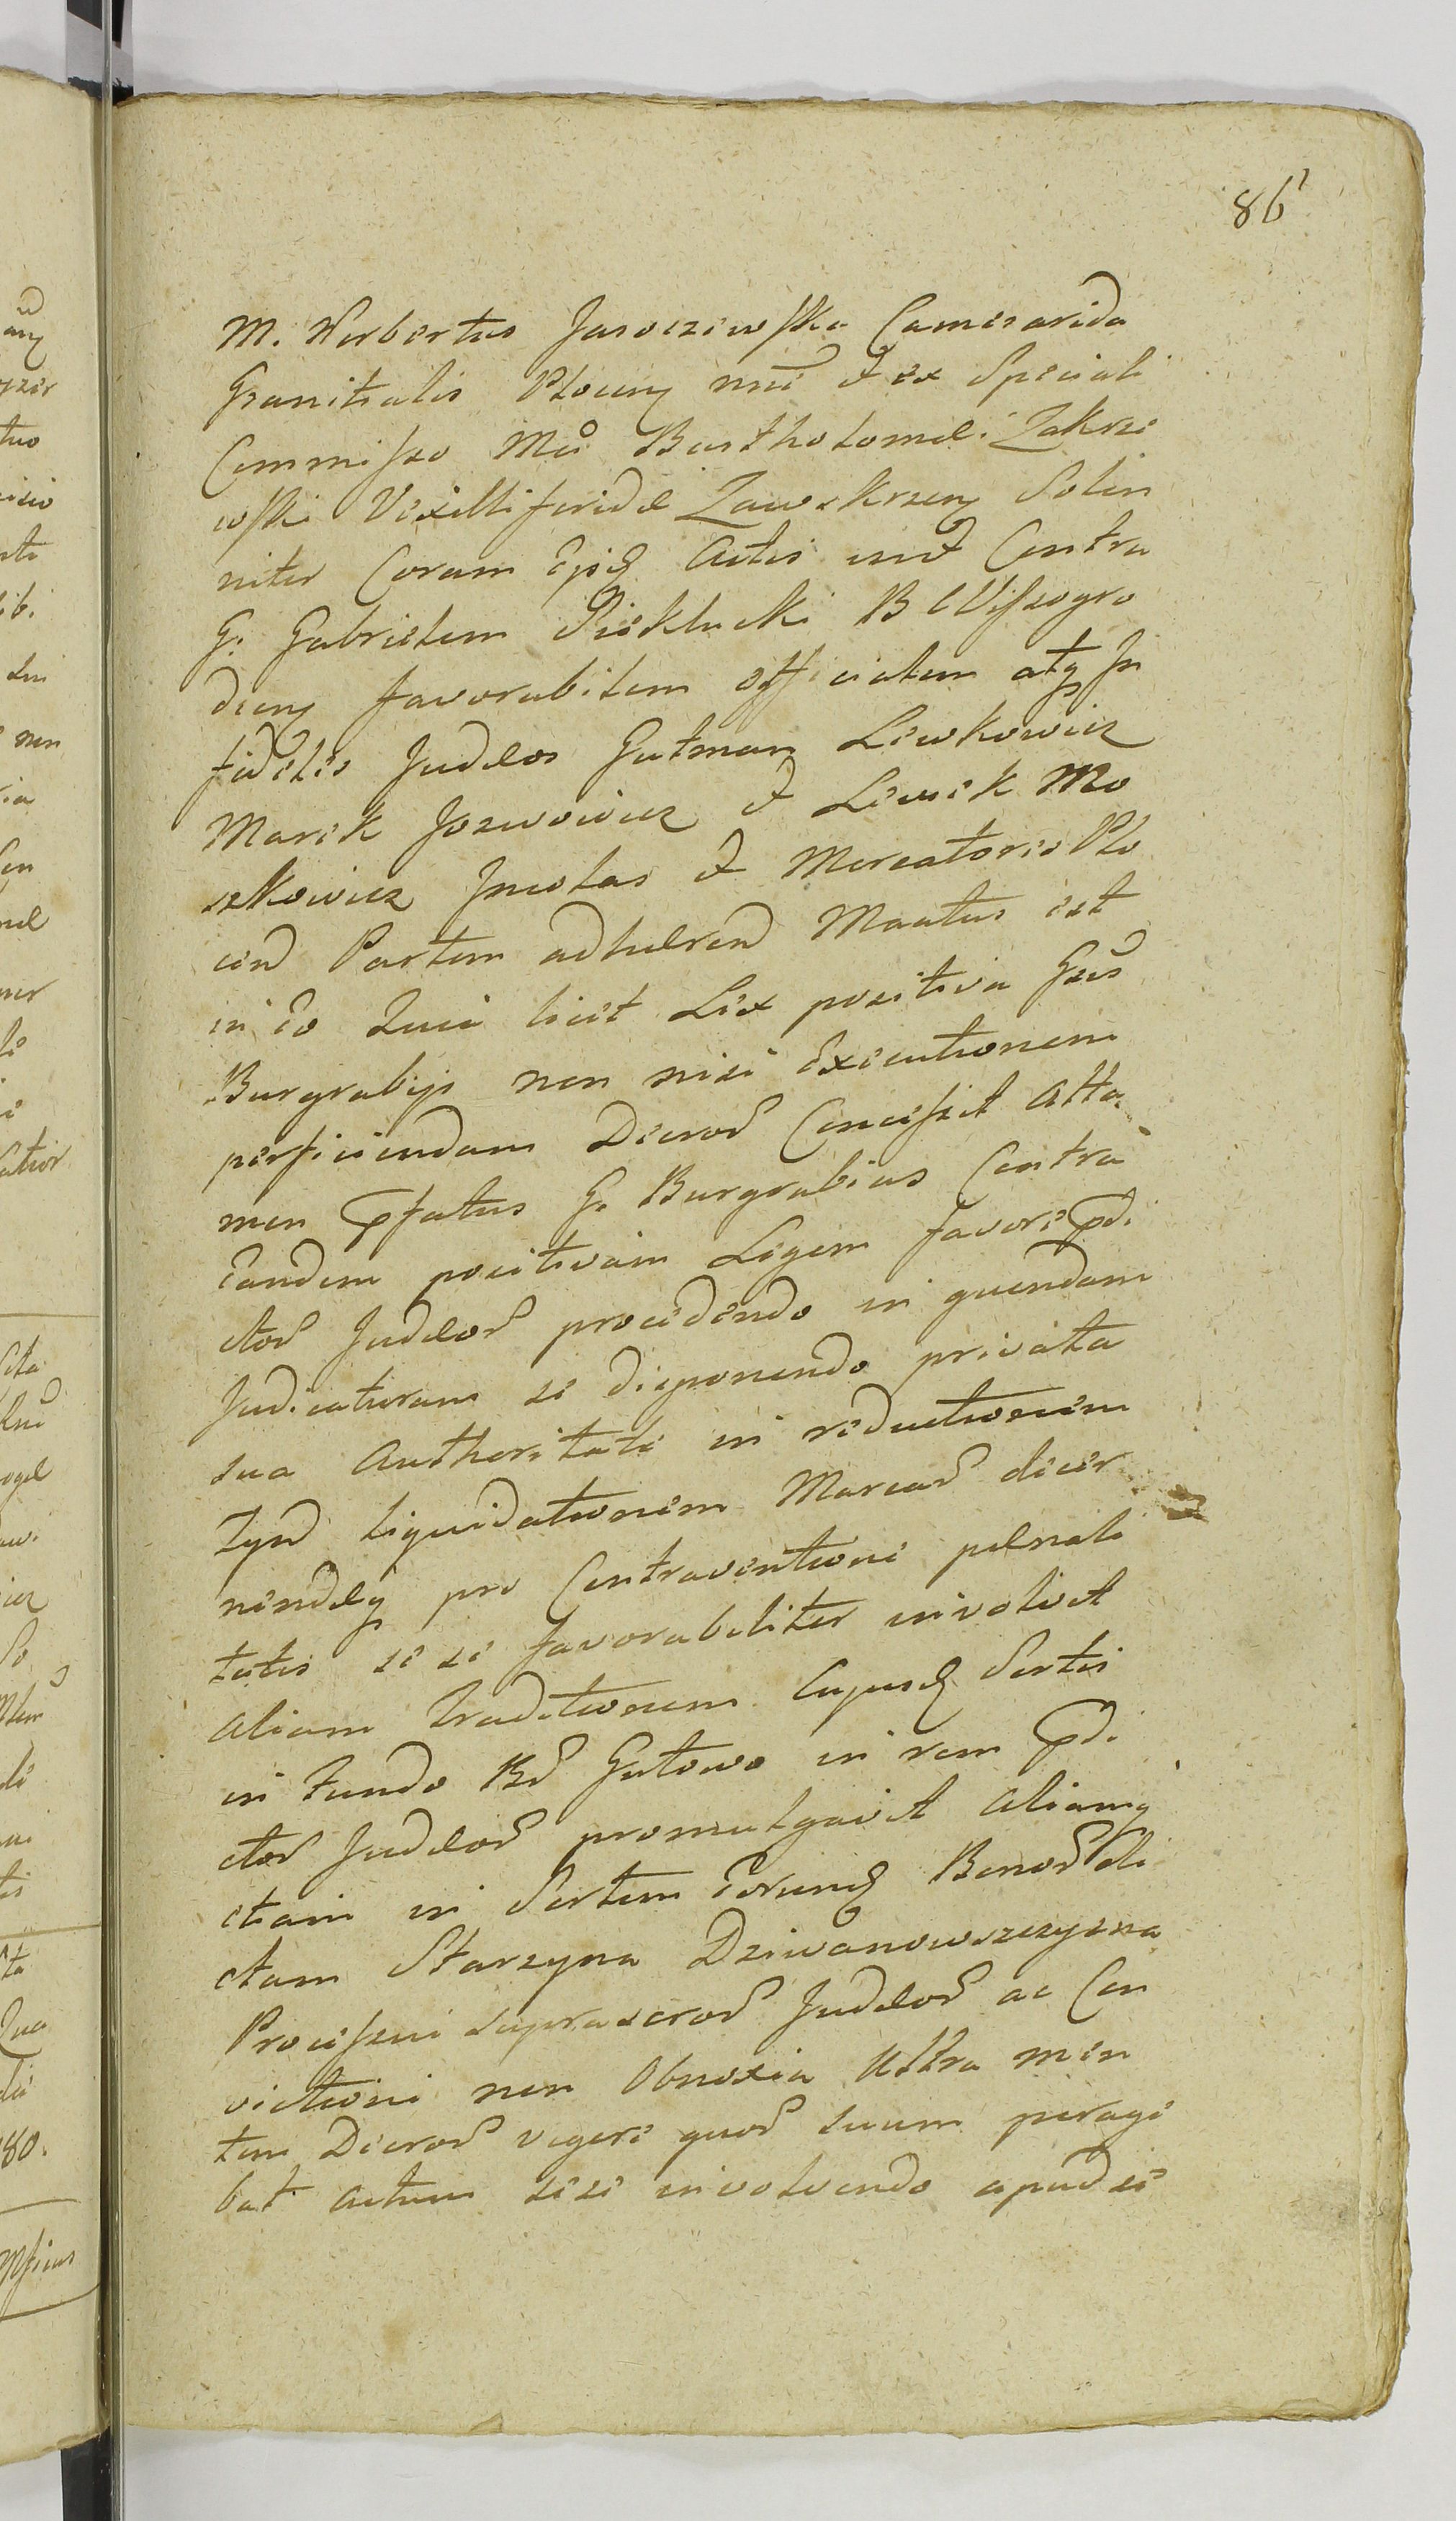 86
M. Norbertus Jaroczewski Camerarida
Granitialis Plocen nnē et ex Speciali
Commisso Mci Bartholomei Zakrze
wski Vexilliferidae Zawskrzen Solen
niter Coram Officio Actis und Contra
G. Gabrielem Piekłucki B Wissogro
dien favorabilem officialem atq In
fideles Judaeos Gutman Lewkowicz
Marek Jozwowicz et Lewek Mo
szkowicz Incolas et Mercatores Plo
cen Partem adhaeren Maatus est
in eo Quia licet Lex positiva Gsis
Burgrabijs non nisi Executionem
perficiendam Decror Concessit Atta
men pfatus G. Burgrabius Contra
Eandem positivam Legem favore pdi
ctor Judaeor procedendo in quendam
Judicaturam se disponendo privata
sua Authoritate in reductionem
liquidationem Marcar decer
nendaeq pro Contraventione paenali
tatis sese favorabiliter involvit
aliam Traditionem Cujusd Sortis
in fundo Br Gutowo in rem pdi
ctor Judaeor promulgavit aliamq
etiam in Sortem Eorund Bonor di
ctam Starzyna Dziwanowszczyzna
Processui suprascror Judaeor ac Con
victioni non Obnoxia Ultra men
tem Decror vigore quor suum perage
bat actum sese involvendo apud se